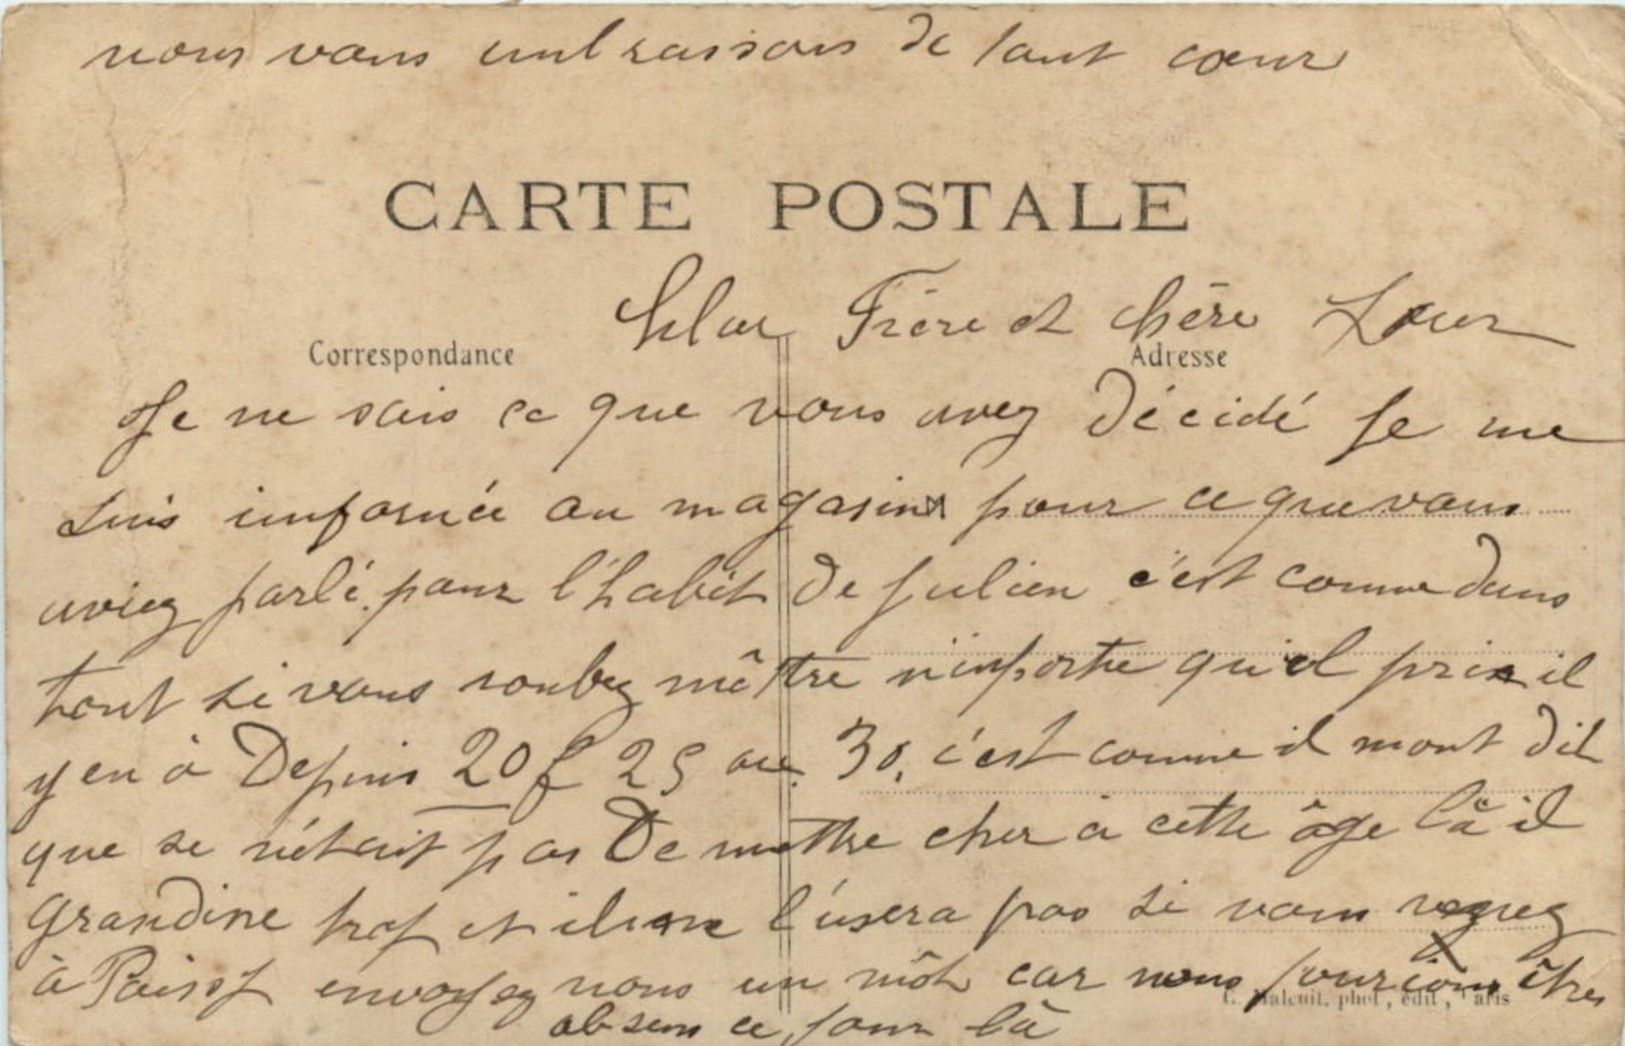 nous vous embrassons de tout cœur
CARTE POSTALE
Cher Frère et chère Sœur
Correspondance
Adresse
Je ne sais ce que vous avez décidé Je me
suis informée au magasin pour ce que vous
aviez parlé pour l'habit de Julien c'est comme dans
tout si vous voulez mêttre n'importe quel prix il
y en à Depuis 20 f 25 ou 30. c'est comme il mont dit
que se n'était pas De mettre cher à cette âge là il
grandire trop et il ne l'usera pas si vous venez
à Poissy envoyez nous un môt car nous pourions êtres
absens ce jour là
phot, édit, Paris